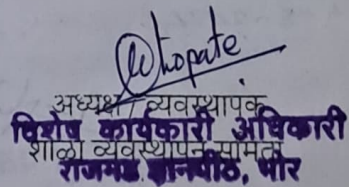 Whopate
अध्यक्ष / व्यवस्थापक
विशेष कार्यकारी अधिकारी
शाळा व्यवस्थापन समिती
राजगड ज्ञानपीठ, भोर